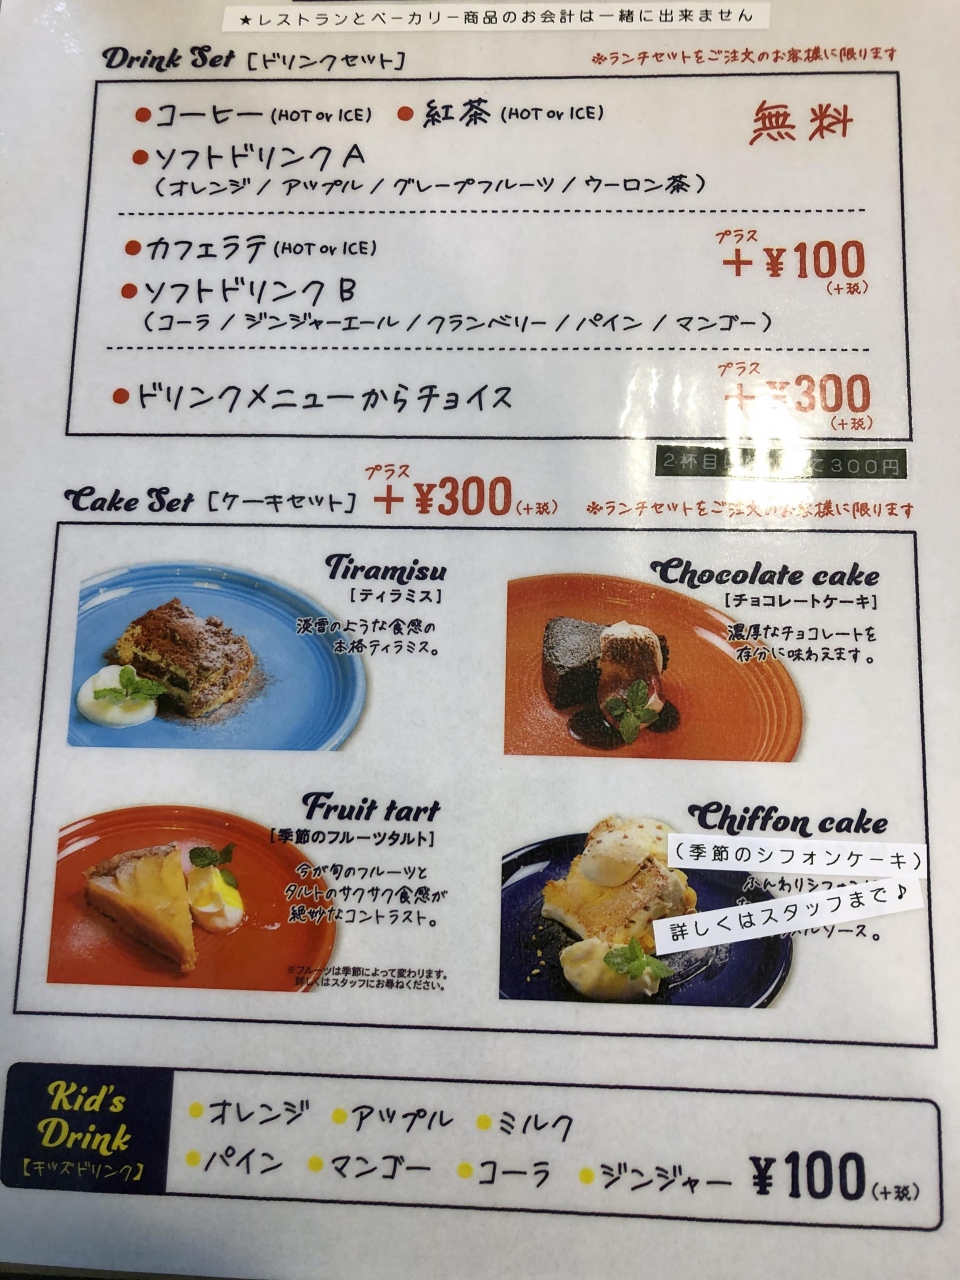 ★レストランとベーカリー商品のお会計は一緒に出来ません
Drink Set [ドリンクセット] ※ランチセットをご注文のお客様に限ります
●コーヒー(HOT or ICE) ●紅茶(HOT or ICE) 無料
●ソフトドリンクA
(オレンジ/アップル/グレープフルーツ/ウーロン茶)
●カフェラテ(HOT or ICE) プラス +¥100 (+税)
●ソフトドリンクB
(コーラ/ジンジャーエール/クランベリー/パイン/マンゴー)
●ドリンクメニューからチョイス プラス +¥300 (+税)
2杯目 て300円
Cake Set [ケーキセット] プラス +¥300(+税) ※ランチセットをご注文のお客様に限ります
Tiramisu
[ティラミス]
淡雪のような食感の
本格ティラミス。
Chocolate cake
[チョコレートケーキ]
濃厚なチョコレートを
存分に味わえます。
Fruit tart
[季節のフルーツタルト]
今が旬のフルーツと
タルトのサクサク食感が
絶妙なコントラスト。
※フルーツは季節によって変わります。
詳しくはスタッフにお尋ねください。
Chiffon cake
(季節のシフォンケーキ)
ふんわりシフォン
詳しくはスタッフまで♪
ルソース。
Kid's
Drink
[キッズドリンク]
●オレンジ ●アップル ●ミルク
●パイン ●マンゴー ●コーラ ●ジンジャー ¥100(+税)